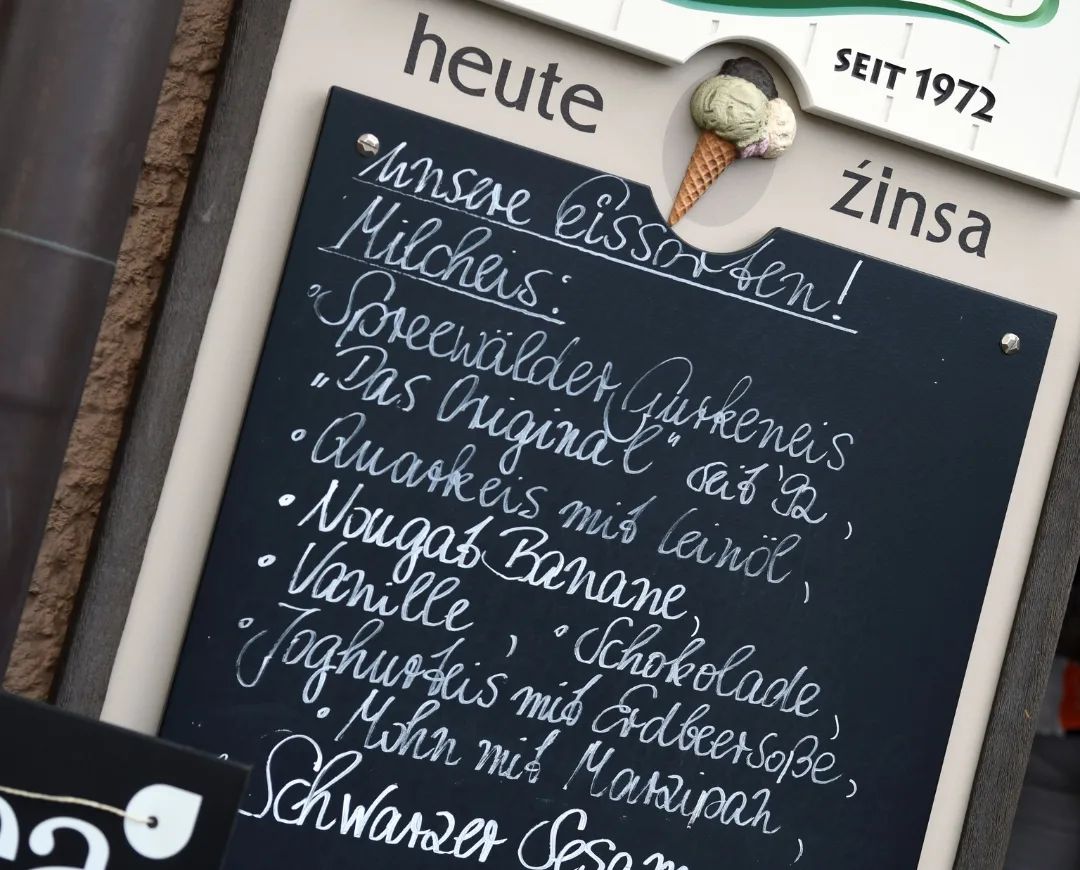 SEIT 1972
heute
źinsa
Unsere Eissorten!
Milcheis:
Spreewälder Gurkeneis
"Das Original" seit '92,
• Quarkeis mit Leinöl,
• Nougat Banane,
• Vanille, • Schokolade,
• Joghurteis mit Erdbeersoße,
• Mohn mit Marzipan,
Schwarzer Sesam